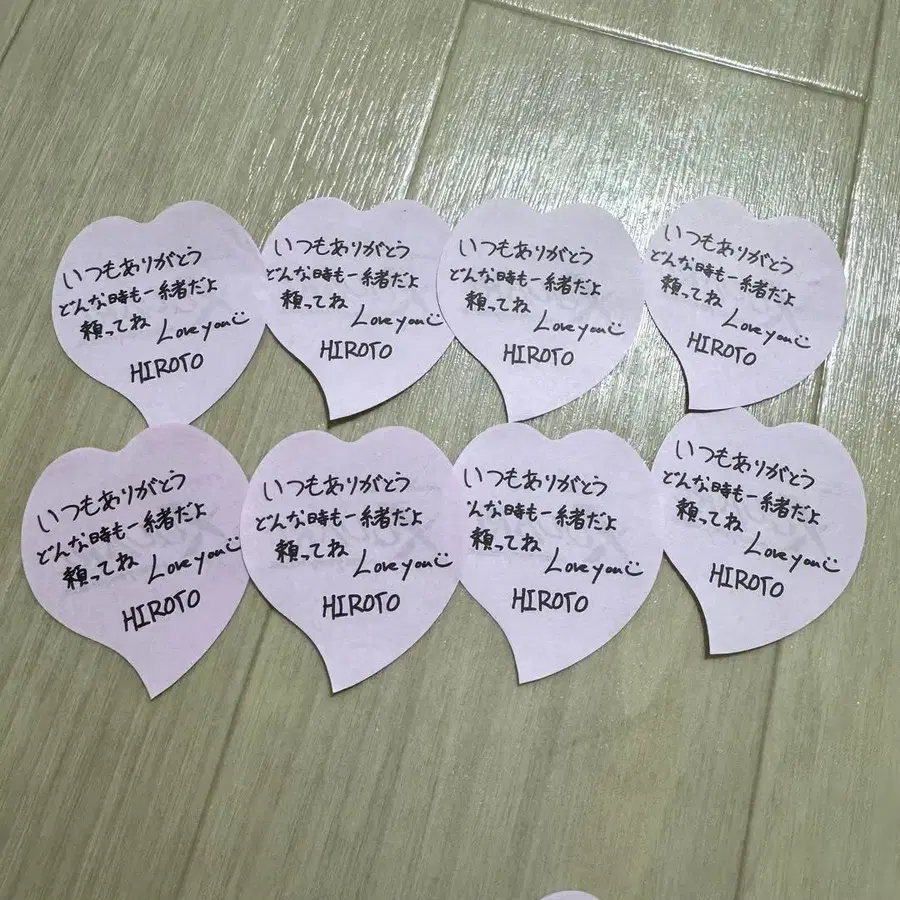 いつもありがとう
どんな時も一緒だよ
頼ってね Love you
HIROTO
いつもありがとう
どんな時も一緒だよ
頼ってね Love you
HIROTO
いつもありがとう
どんな時も一緒だよ
頼ってね Love you
HIROTO
いつもありがとう
どんな時も一緒だよ
頼ってね Love you
HIROTO
いつもありがとう
どんな時も一緒だよ
頼ってね Love you
HIROTO
いつもありがとう
どんな時も一緒だよ
頼ってね Love you
HIROTO
いつもありがとう
んな時も一緒だよ
頼ってね Love you
HIROTO
いつもありがとう
どんな時も一緒だよ
頼ってね Love you
HIROTO